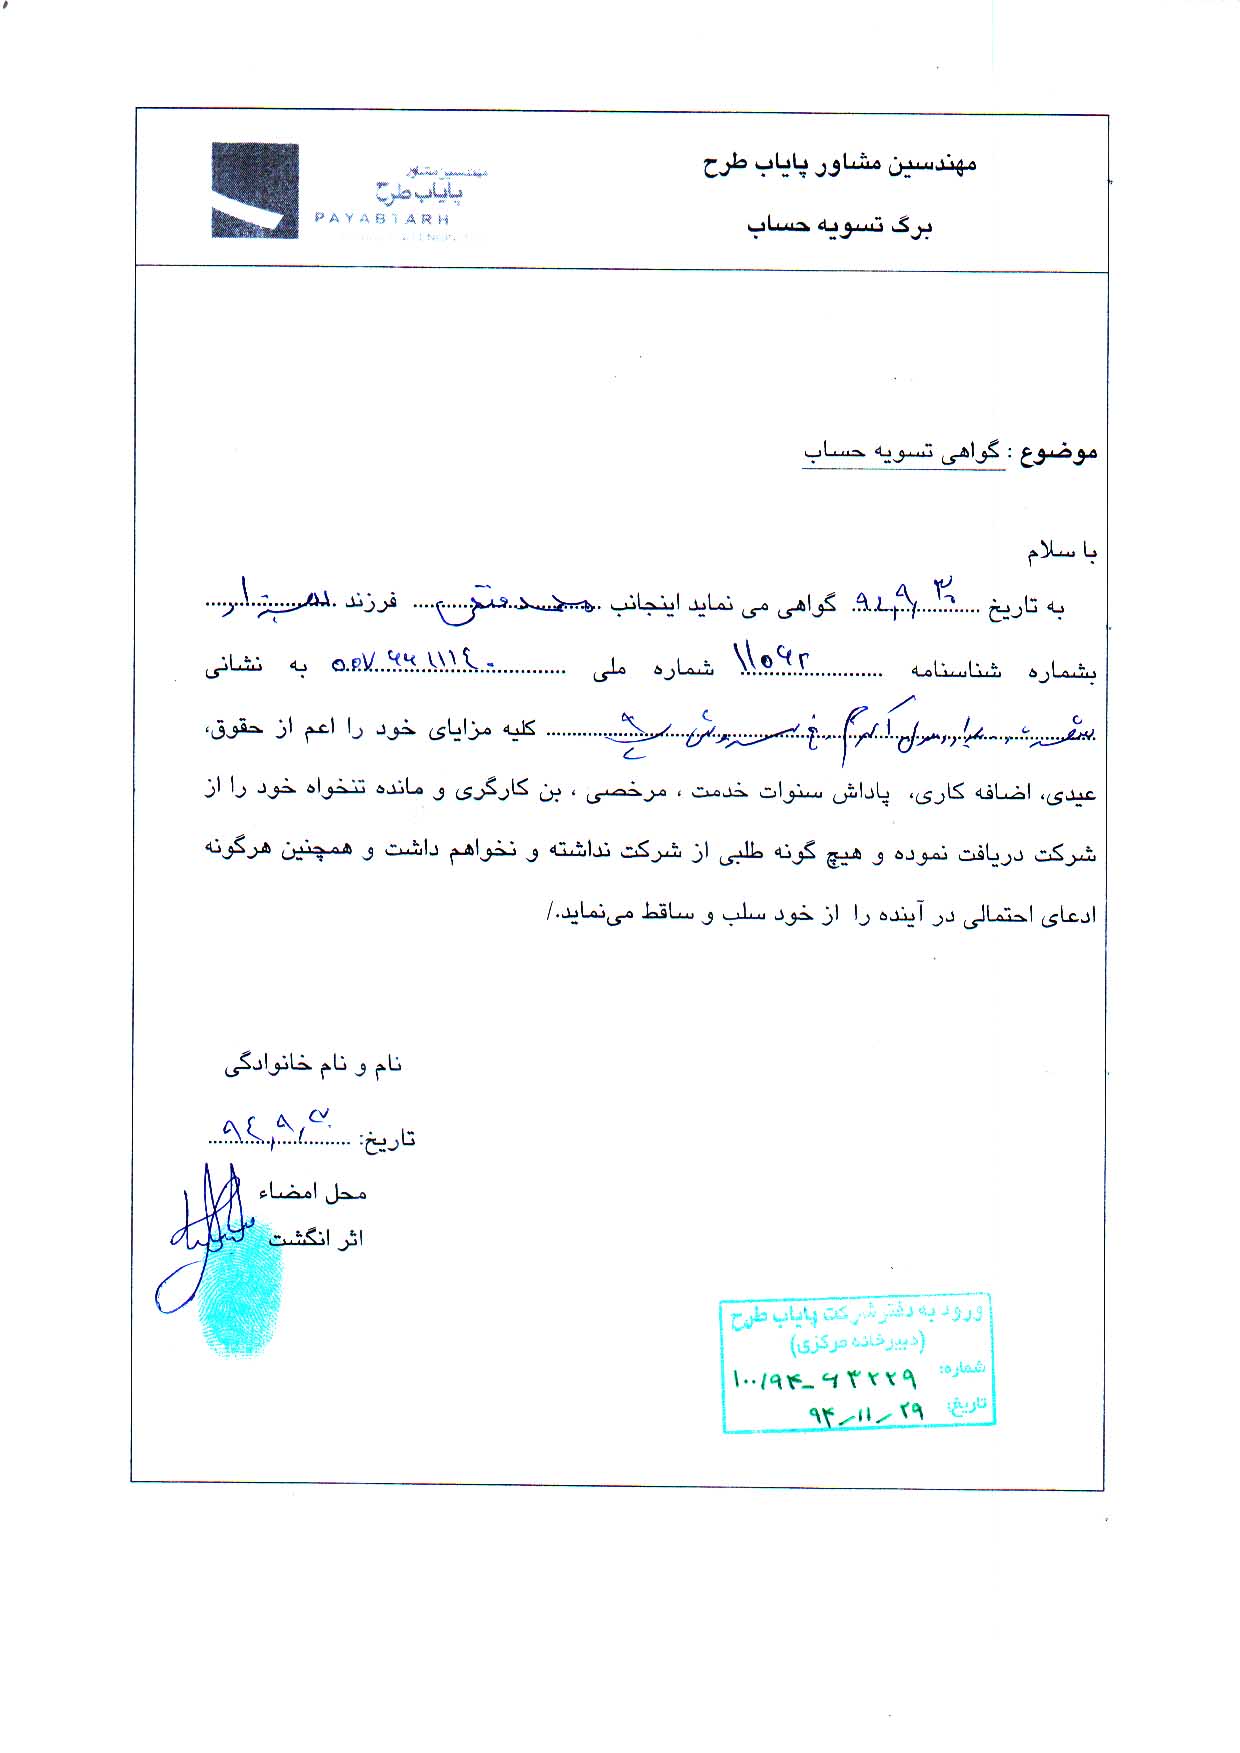 مهندسین مشاور پایاب طرح
برگ تسویه حساب
مهندسین مشاور
پایاب طرح
PAYABTARH
موضوع : گواهی تسویه حساب
با سلام
به تاریخ ۹۴/۹/۳۰ گواهی می نماید اینجانب محمد فرزند
بشماره شناسنامه ۱۱۰۶۲ شماره ملی به نشانی
کلیه مزایای خود را اعم از حقوق،
عیدی، اضافه کاری، پاداش سنوات خدمت ، مرخصی ، بن کارگری و مانده تنخواه خود را از
شرکت دریافت نموده و هیچ گونه طلبی از شرکت نداشته و نخواهم داشت و همچنین هرگونه
ادعای احتمالی در آینده را از خود سلب و ساقط می‌نماید./
نام و نام خانوادگی
تاریخ: ۹۴/۹/۳۰
محل امضاء
اثر انگشت
ورود به دفتر شرکت پایاب طرح
(دبیرخانه مرکزی)
شماره: ۱۰۰/۹۴-۶۳۲۲۹
تاریخ: ۹۴/۱۱/۲۹